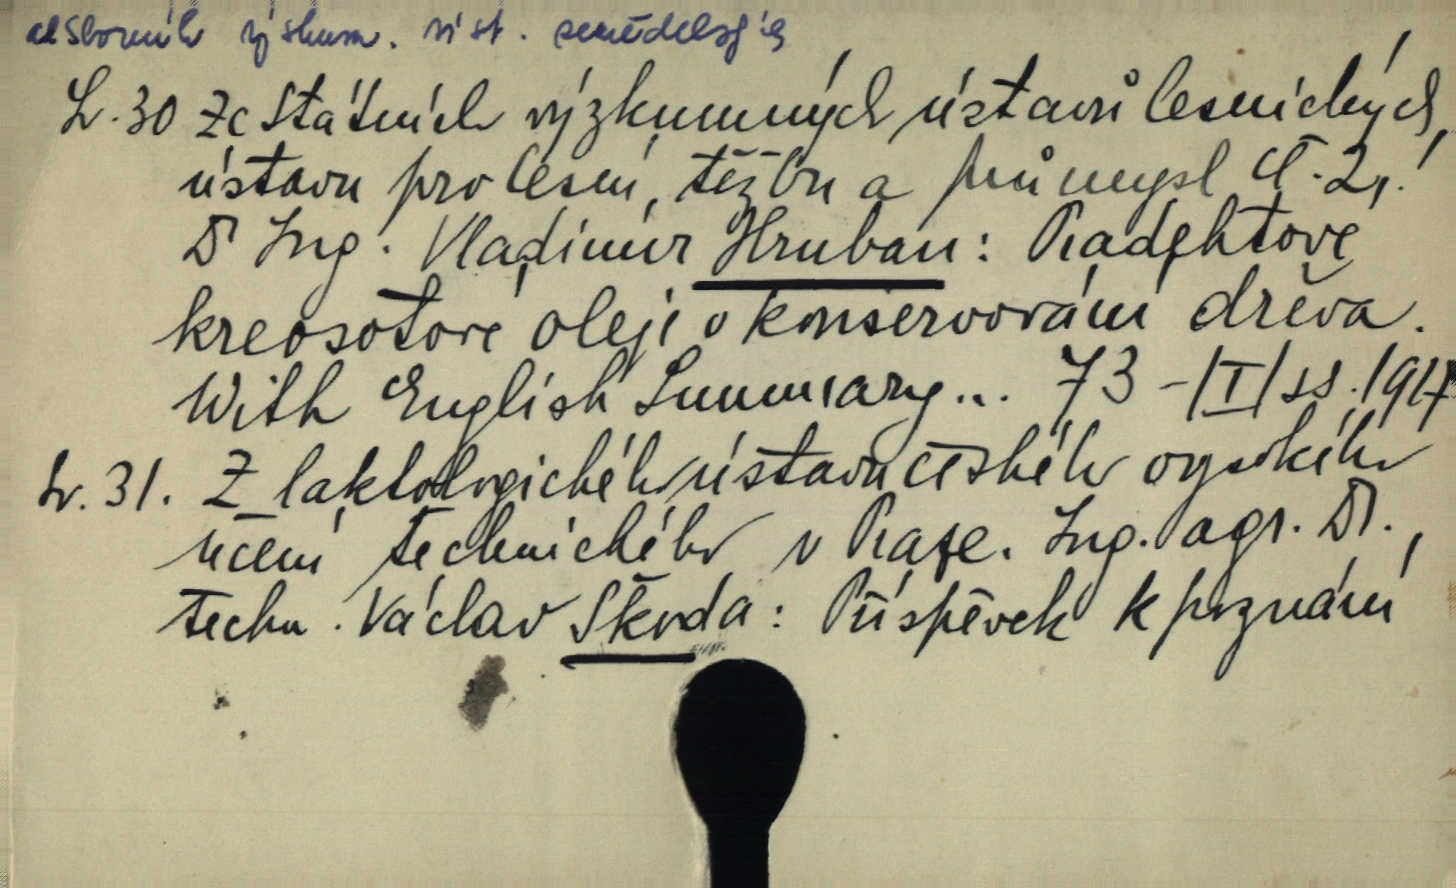 Sborník výzkum. úst. zemědělských
Sv. 30 Ze státních výzkumných ústavů lesnických,
ústavu pro lesní těžbu a průmysl č. 2,:
Dr Ing. Vladimír Hruban: Radehtové
kreosotové oleje v konservování dřeva.
With English Summary... 73 - /I/ ss. 1947
Sv. 31. Z laktologického ústavu českého vysokého
učení technického v Praze. Ing. agr. Dr.
techn. Václav Škoda: Příspěvek k poznání